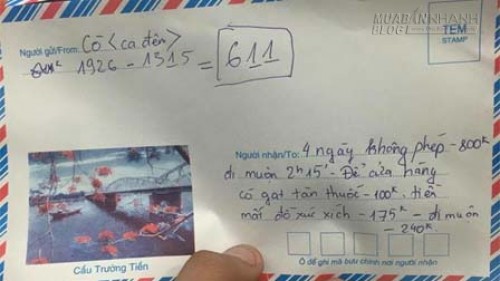 MUABANNHANH
BLOG
TEM
STAMP
Người gửi/From: Cô <ca đêm>
1926 - 1315 = 611
Người nhận/To: 4 ngày không phép - 800k
đi muộn 2h15' - Để cửa hàng
có gạt tàn thuốc - 100k. tiền
mất đồ xúc xích - 175k - đi muộn
- 240k.
Cầu Trường Tiền
Ô để ghi mã bưu chính nơi người nhận